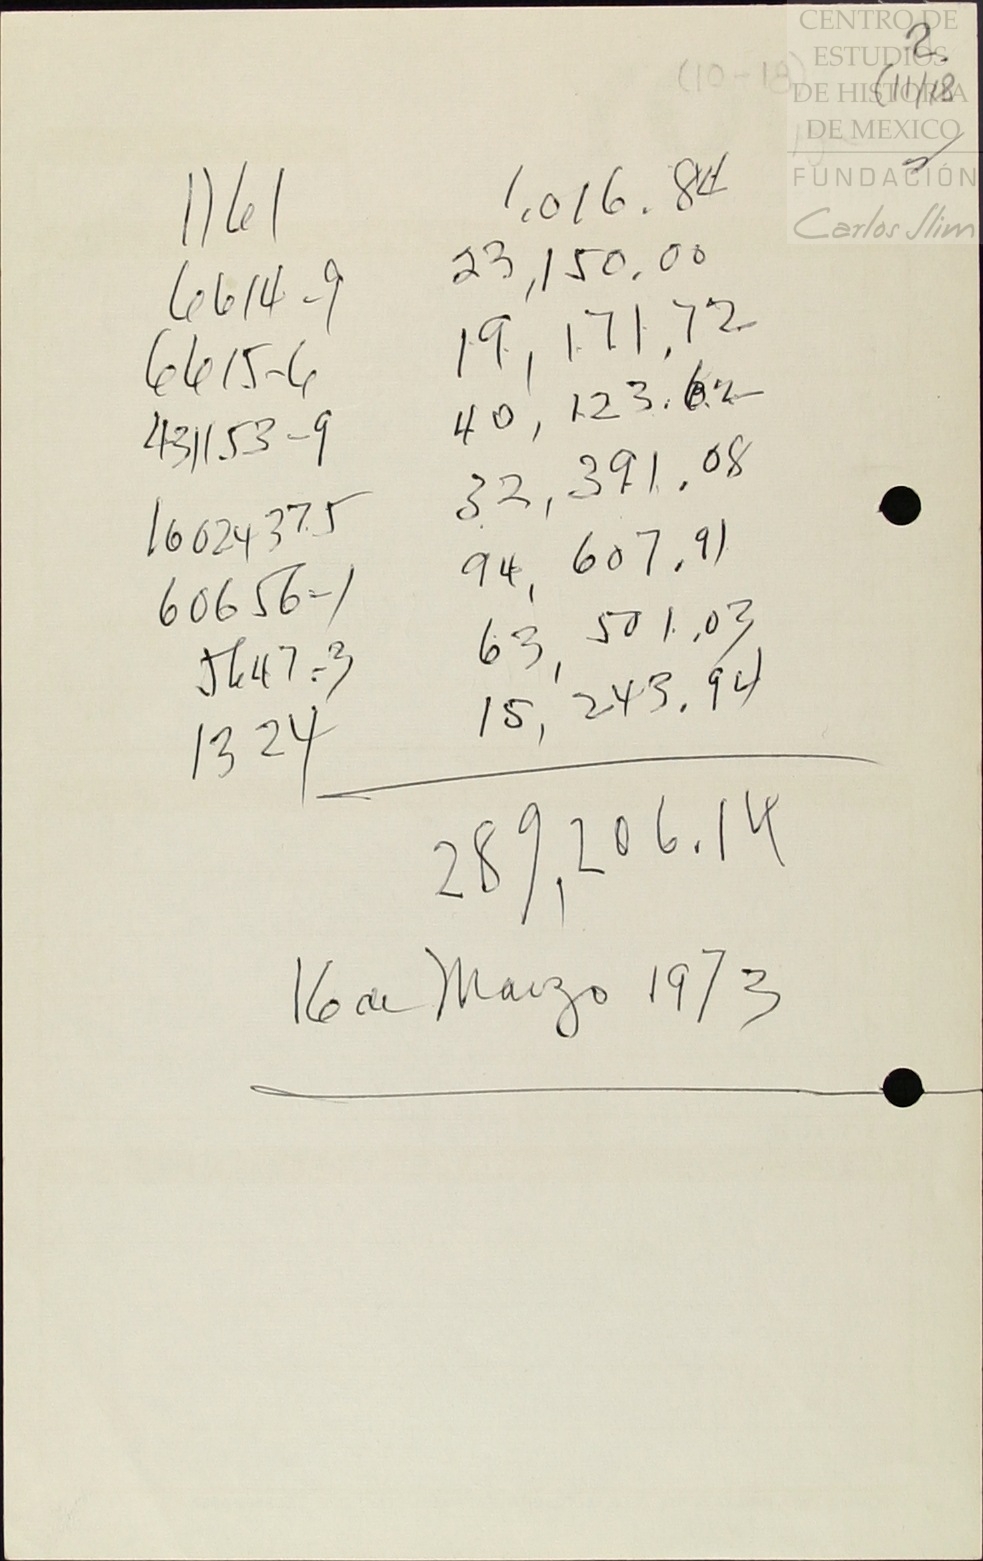 CENTRO DE
ESTUDIOS
DE HISTORIA
DE MEXICO
FUNDACIÓN
Carlos Slim
2
(11/18
(10-18)
1161 1,016.84
6614-9 23,150.00
6615-6 19,171.72
431153-9 40,123.62
16024375 32,391.08
60656-1 94,607.91
5647-3 63,501.03
1324 15,243.94
289,206.14
16 de Marzo 1973